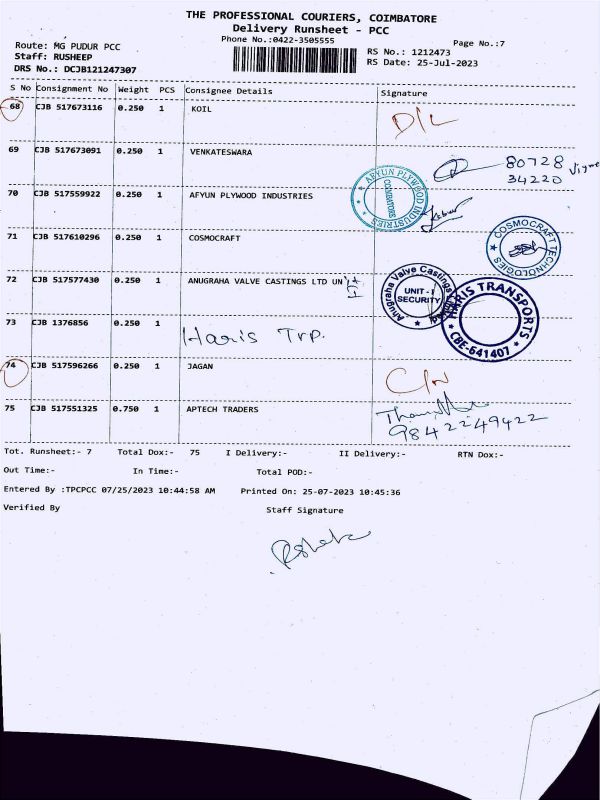 THE PROFESSIONAL COURIERS, COIMBATORE
Delivery Runsheet - PCC
Phone No.:0422-3505555
Page No.:7
Route: MG PUDUR PCC
RS No.: 1212473
Staff: RUSHEEP
RS Date: 25-Jul-2023
DRS No.: DCJB121247307
S No Consignment No Weight PCS Consignee Details Signature
68 CJB 517673116 0.250 1 KOIL D/L
69 CJB 517673091 0.250 1 VENKATESWARA 80728
34220
70 CJB 517559922 0.250 1 AFYUN PLYWOOD INDUSTRIES
AFYUN PLYWOOD INDUSTRIES COIMBATORE
71 CJB 517610296 0.250 1 COSMOCRAFT
COSMOCRAFT TECHNOLOGIES
72 CJB 517577430 0.250 1 ANUGRAHA VALVE CASTINGS LTD UNIT I
Anugraha Valve Castings
UNIT - I
SECURITY
73 CJB 1376856 0.250 1 Haris Trp.
HARIS TRANSPORTS
CBE-641407
74 CJB 517596266 0.250 1 JAGAN C/N
75 CJB 517551325 0.750 1 APTECH TRADERS
9842249422
Tot. Runsheet:- 7 Total Dox:- 75 I Delivery:- II Delivery:- RTN Dox:-
Out Time:- In Time:- Total POD:-
Entered By :TPCPCC 07/25/2023 10:44:58 AM Printed On: 25-07-2023 10:45:36
Verified By Staff Signature